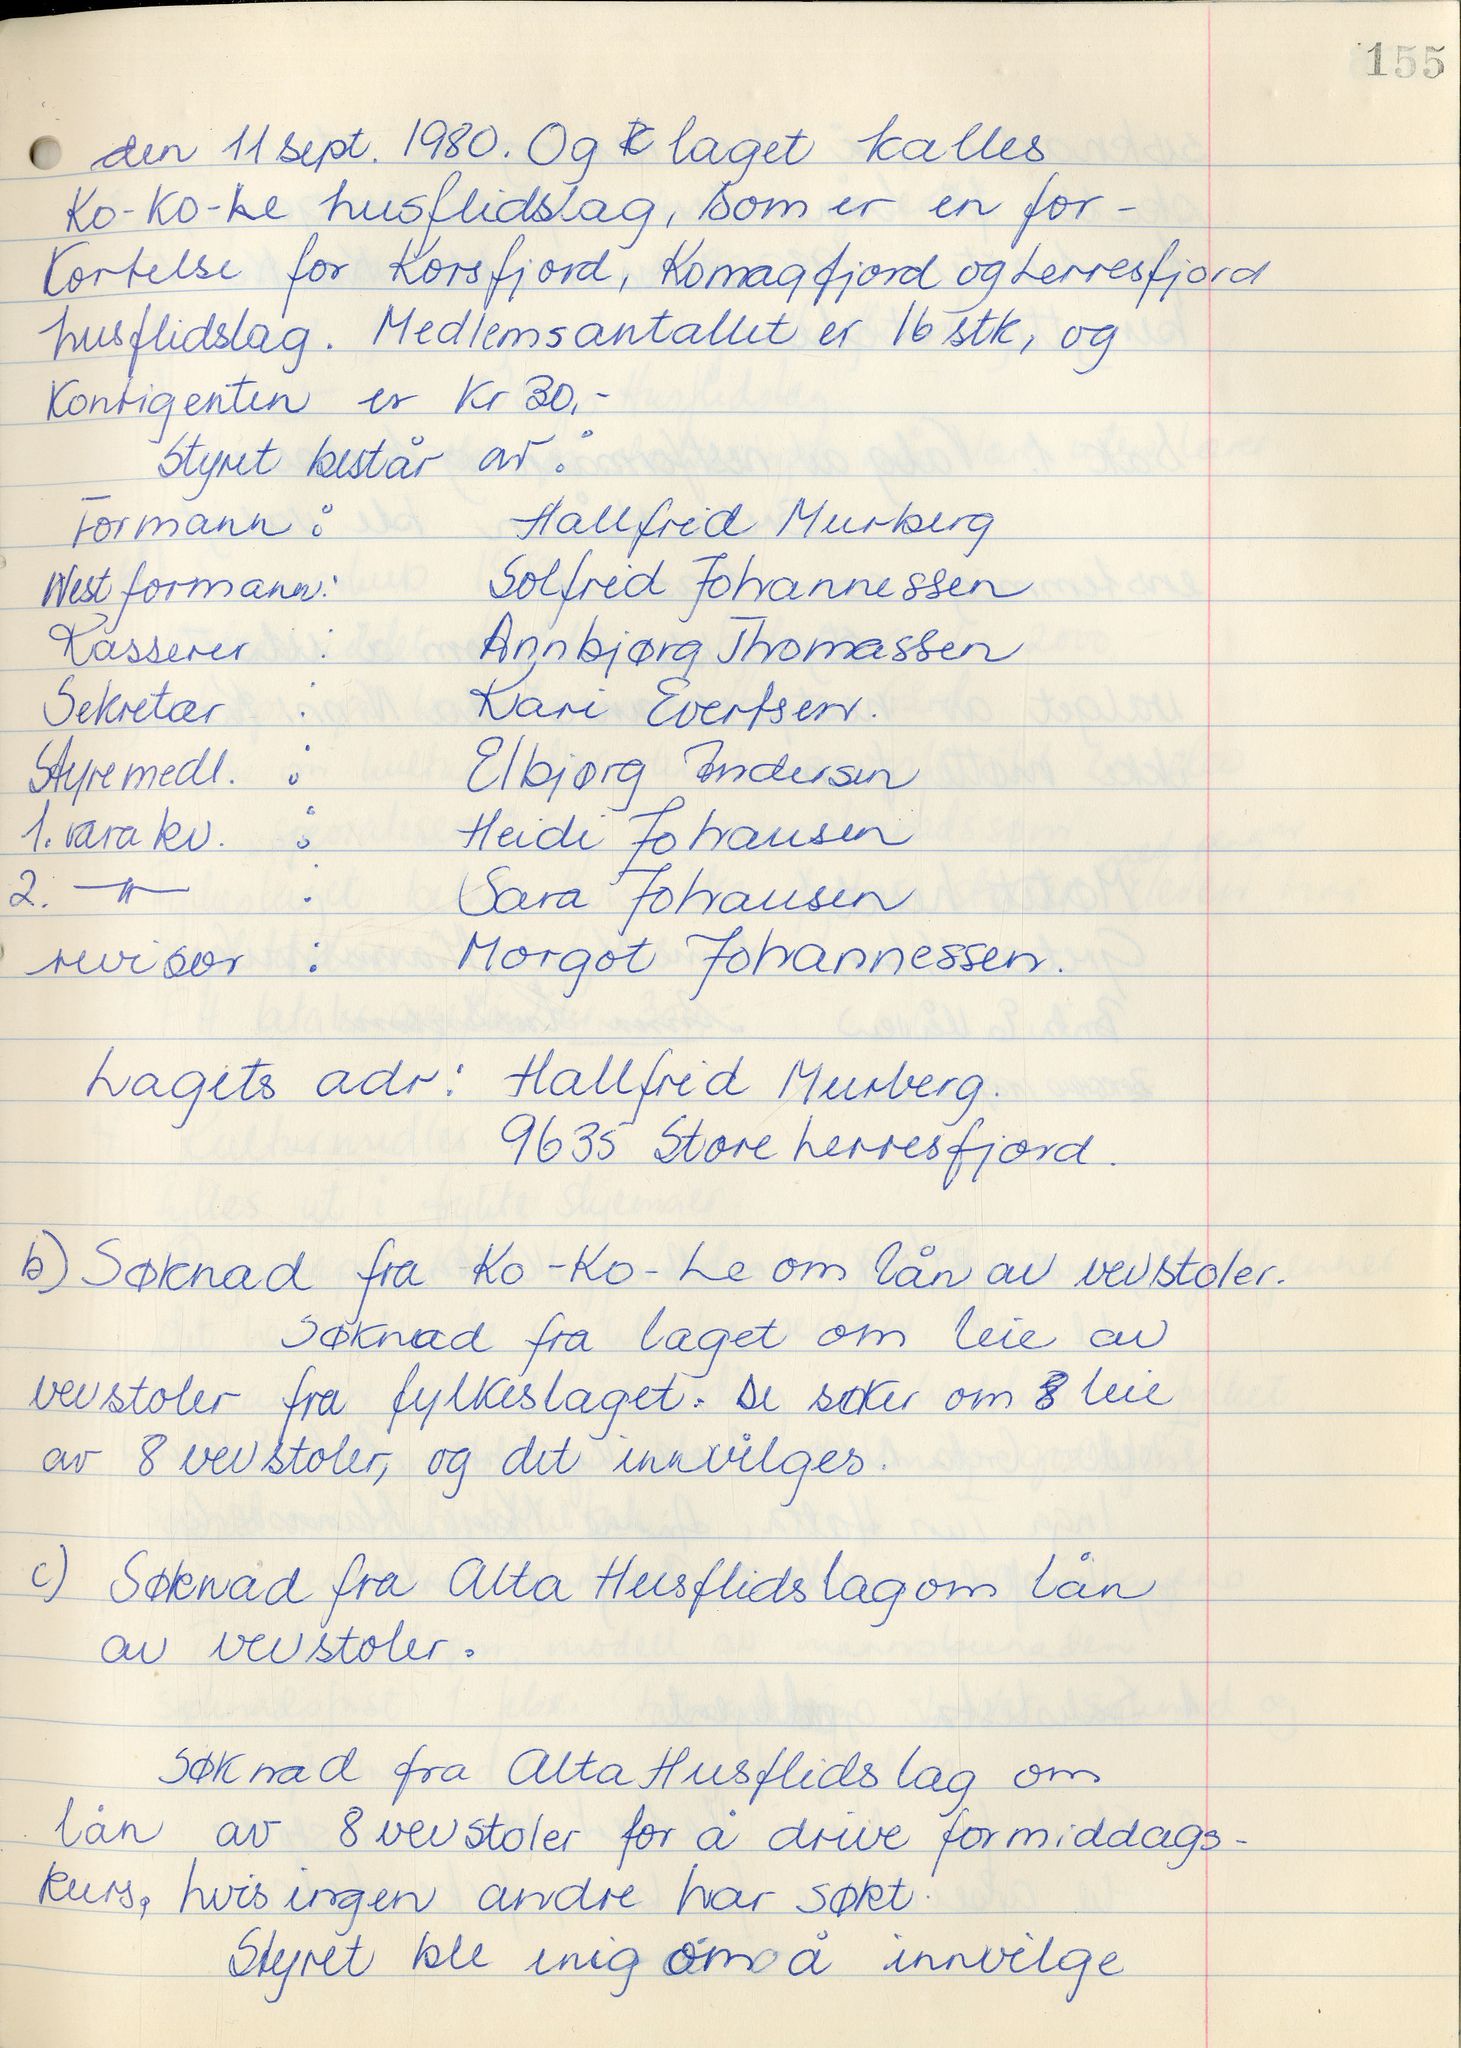 155
den 11 sept. 1980. Og laget kalles
Ko-Ko-Le husflidslag, som er en for-
kortelse for Korsfjord, Komagfjord og Lerresfjord
husflidslag. Medlemsantallet er 16 stk, og
Kontigenten er Kr 30,-
Styret består av:
Formann: Hallfrid Murberg
Nestformann: Solfrid Johannessen
Kasserer : Annbjørg Thomassen
Sekretær : Kari Evertsen.
Styremedl. : Elbjørg Andersen
1. vara kv. : Heidi Johansen
2. —"— : Sara Johansen
revisor : Morgot Johannessen.
Lagets adr: Hallfrid Murberg.
9635 Store Lerresfjord.
b) Søknad fra Ko-Ko-Le om lån av vevstoler.
Søknad fra laget om leie av
vevstoler fra fylkeslaget. De søker om leie
av 8 vevstoler, og det innvilges.
c) Søknad fra Alta Husflidslag om lån
av vevstoler.
Søknad fra Alta Husflidslag om
lån av 8 vevstoler for å drive formiddags-
kurs, hvis ingen andre har søkt.
Styret ble enig om å innvilge